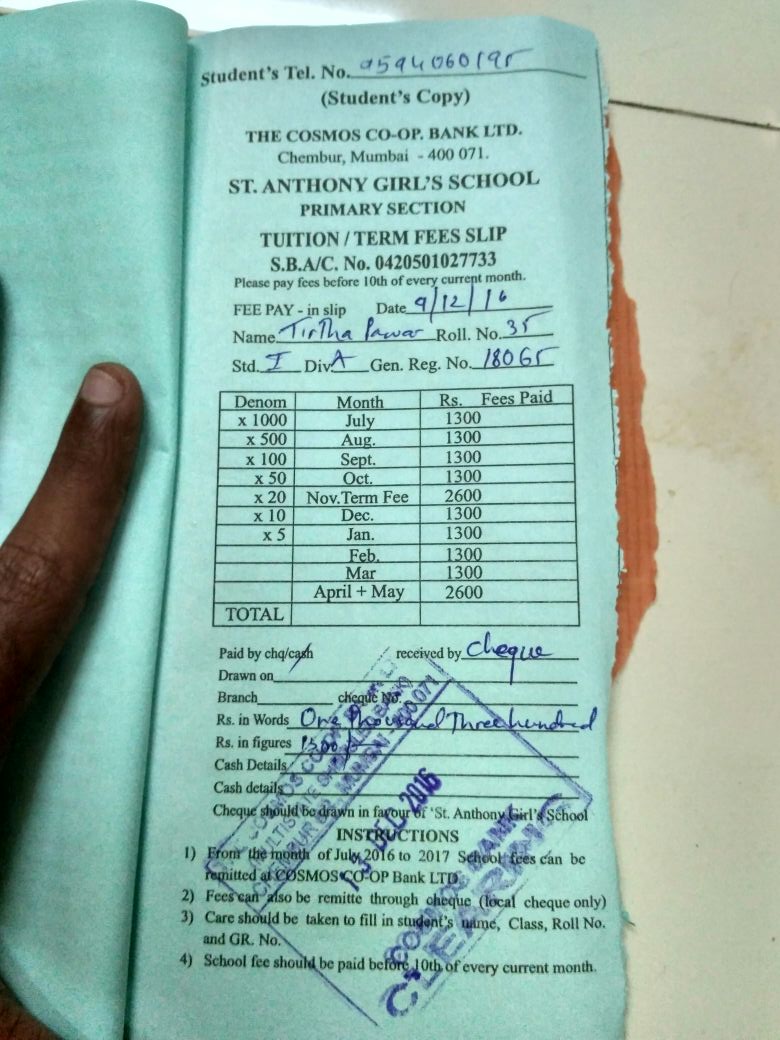 Student's Tel. No. 9594060195
(Student's Copy)
THE COSMOS CO-OP. BANK LTD.
Chembur, Mumbai - 400 071.
ST. ANTHONY GIRL'S SCHOOL
PRIMARY SECTION
TUITION / TERM FEES SLIP
S.B.A/C. No. 0420501027733
Please pay fees before 10th of every current month.
FEE PAY - in slip Date 9/12/16
Name. Tirtha Pawar Roll. No. 35
Std. I Div A Gen. Reg. No. 18065
Denom Month Rs. Fees Paid
x 1000 July 1300
x 500 Aug. 1300
x 100 Sept. 1300
x 50 Oct. 1300
x 20 Nov.Term Fee 2600
x 10 Dec. 1300
x 5 Jan. 1300
Feb. 1300
Mar 1300
April + May 2600
TOTAL
Paid by chq/cash received by Cheque
Drawn on
Branch cheque No.
Rs. in Words One Thousand Three hundred
Rs. in figures 1300/-
Cash Details
Cash details
Cheque should be drawn in favour of 'St. Anthony Girl's School
INSTRUCTIONS
1) From the month of July 2016 to 2017 School fees can be
remitted at COSMOS CO-OP Bank LTD.
2) Fees can also be remitte through cheque (local cheque only)
3) Care should be taken to fill in student's name, Class, Roll No.
and GR. No.
4) School fee should be paid before 10th of every current month.
COSMOS
MULTISTATE
CHEMBUR BR. MUMBAI - 400 071
DEC 2016
COSMOS BANK
CLEARING